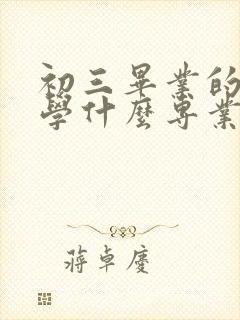 初三畢業的
學什麼專業
蔣卓慶